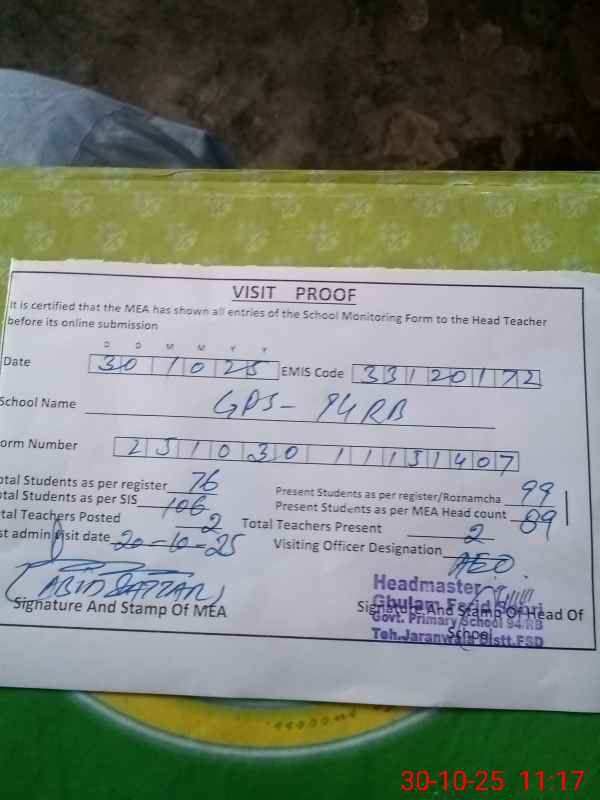 VISIT PROOF
It is certified that the MEA has shown all entries of the School Monitoring Form to the Head Teacher
before its online submission
D D M M Y Y
Date 30 10 25 EMIS Code 33120172
School Name GPS- 94RB
orm Number 251030 11131407
otal Students as per register 76 Present Students as per register/Roznamcha 99
otal Students as per SIS 106 Present Students as per MEA Head count 89
tal Teachers Posted 2 Total Teachers Present 2
st admin visit date 20-10-25 Visiting Officer Designation AEO
ABID SATTAR
Signature And Stamp Of MEA Signature And Stamp Of Head Of
School
Headmaster
Ghulam Farid
Govt. Primary School 94/RB
Teh.Jaranwala Distt.FSD
30-10-25 11:17